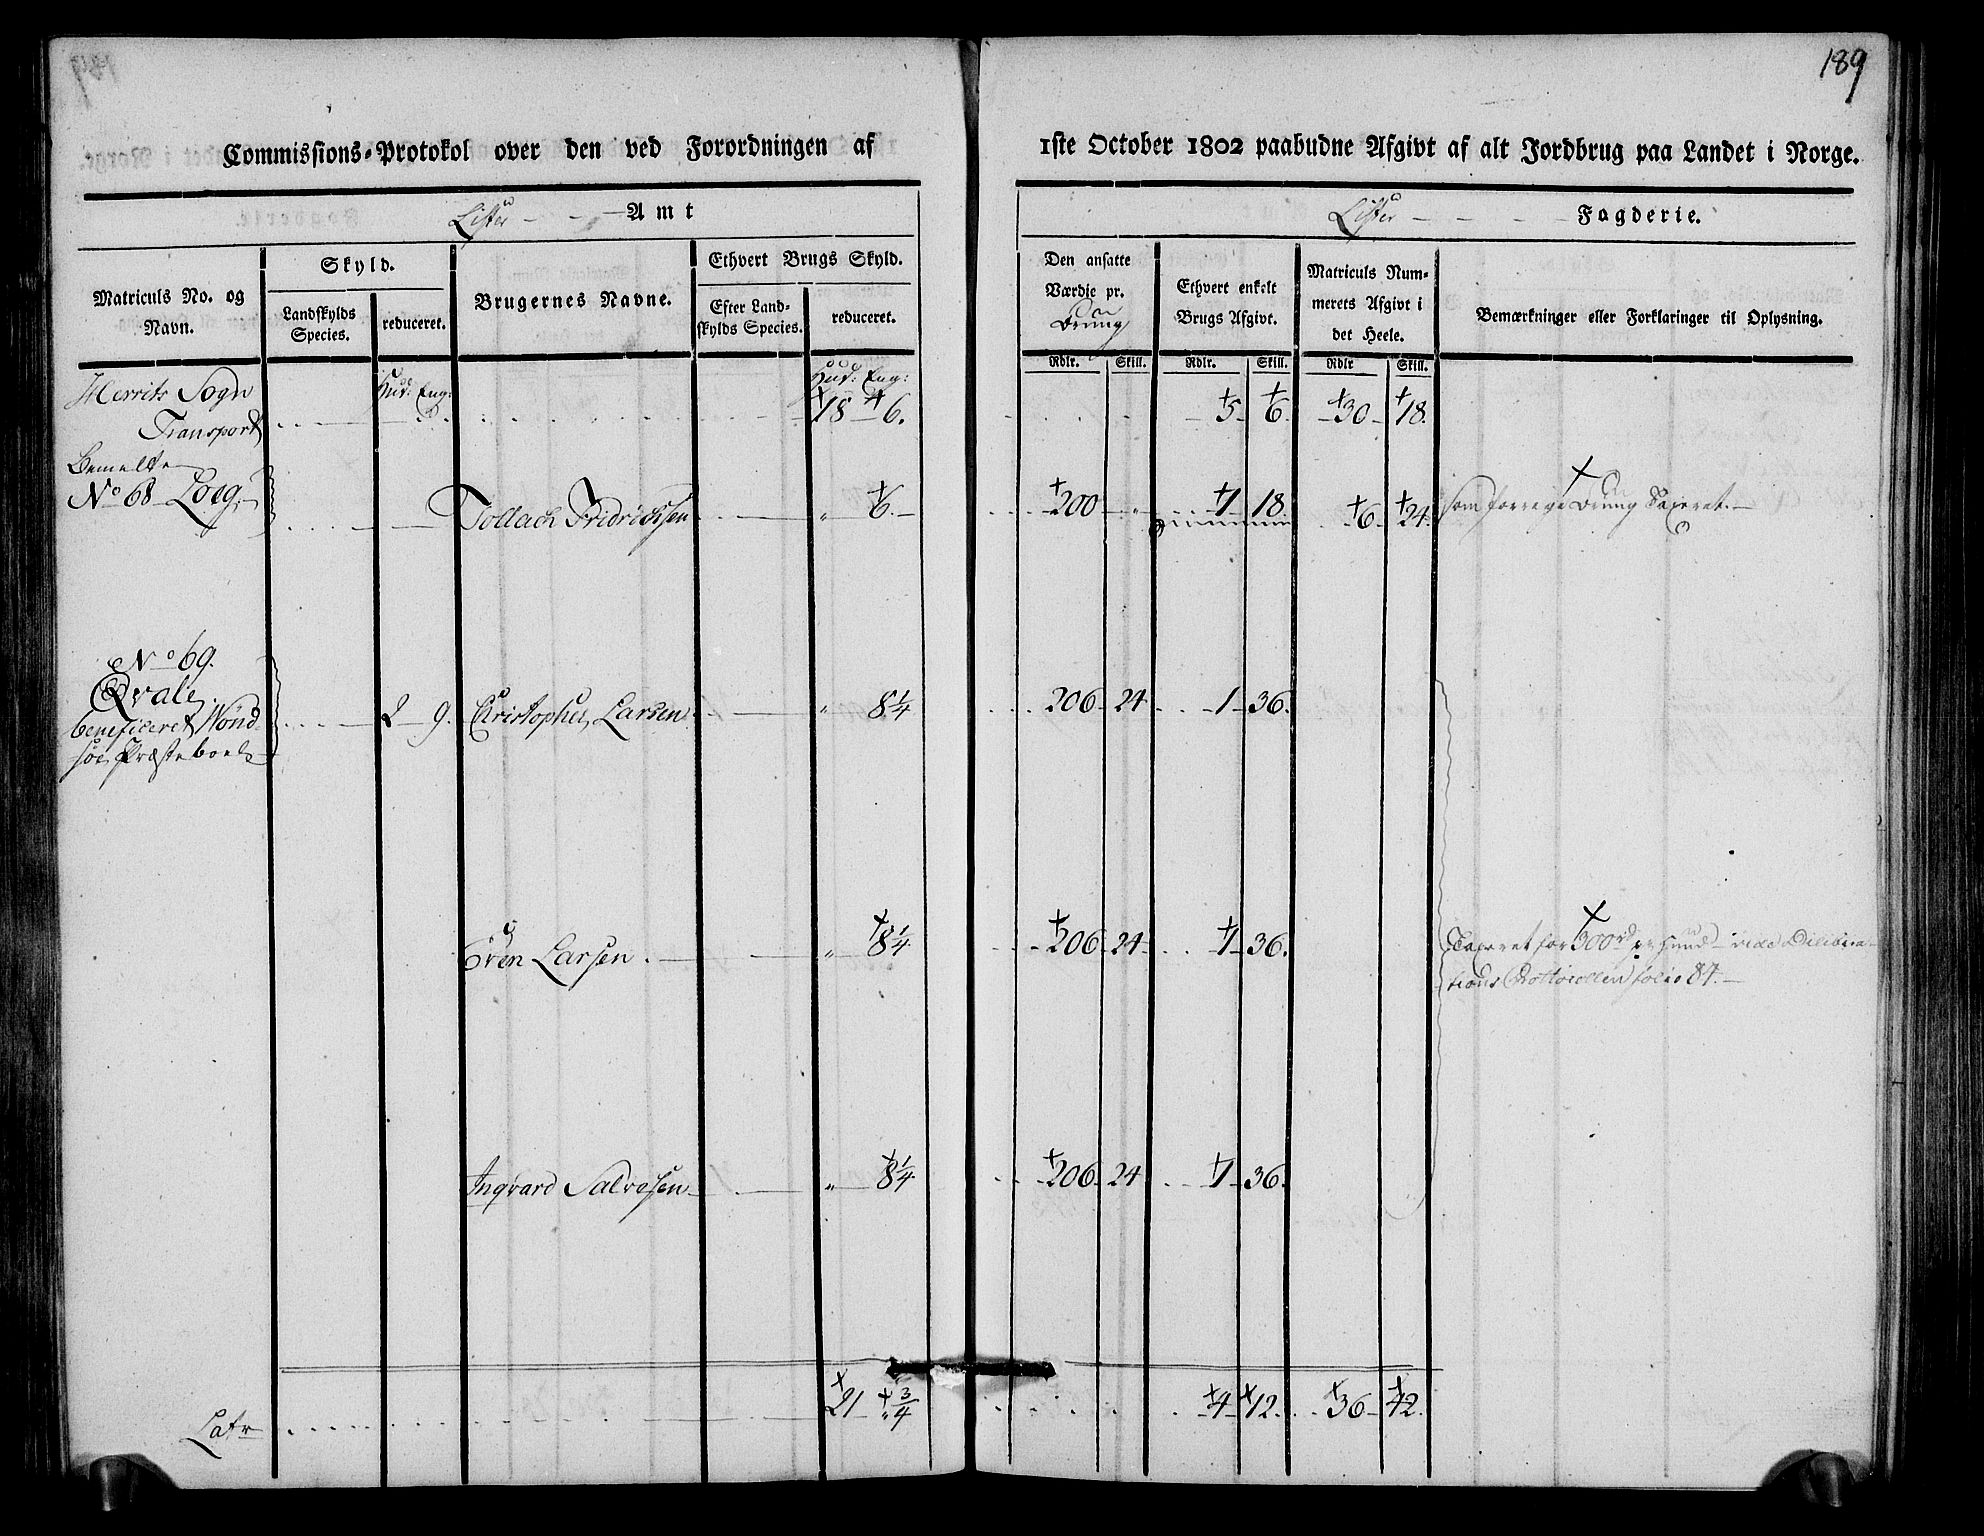 189
Commissions-Protokol over den ved Forordningen af 1ste October 1802 paabudne Afgivt af alt Jordbrug paa Landet i Norge.
Lister - - - Amt
Lister - - - - Fagderie.
Matriculs No. og Navn.
Skyld.
Landskylds Species.
reduceret.
Brugernes Navne.
Ethvert Brugs Skyld.
Efter Landskylds Species.
reduceret.
Den ansatte Værdie pr.
Brug
Ethvert enkelt Brugs Afgivt.
Matriculs Nummerets Afgivt i det Heele.
Bemærkninger eller Forklaringer til Oplysning.
Rdlr. Skill. Rdlr. Skill. Rdlr Skill.
Hud: Eng: Hud: Eng:
Herrits Sogn
Transport 18 6. 5 6. 30 18.
Bemelte
No 68 Loeg. Tollach Fridrichsen " 6. 200 " 1 18. 6 24. som forrige Brug Taxeret.
No 69.
Qvale
beneficeret
Præstebord 2 9. Christopher Larsen " 8 1/4 206 24 1 36.
Sven Larsen. " 8 1/4 206 24 1 36. Taxeret for 300 rd pr Huud vide Delibera-
tions Prottocollen folio 84.
Ingvard Salvesen " 8 1/4 206 24 1 36.
Latr 21 " 3/4 4 12. 36 42.